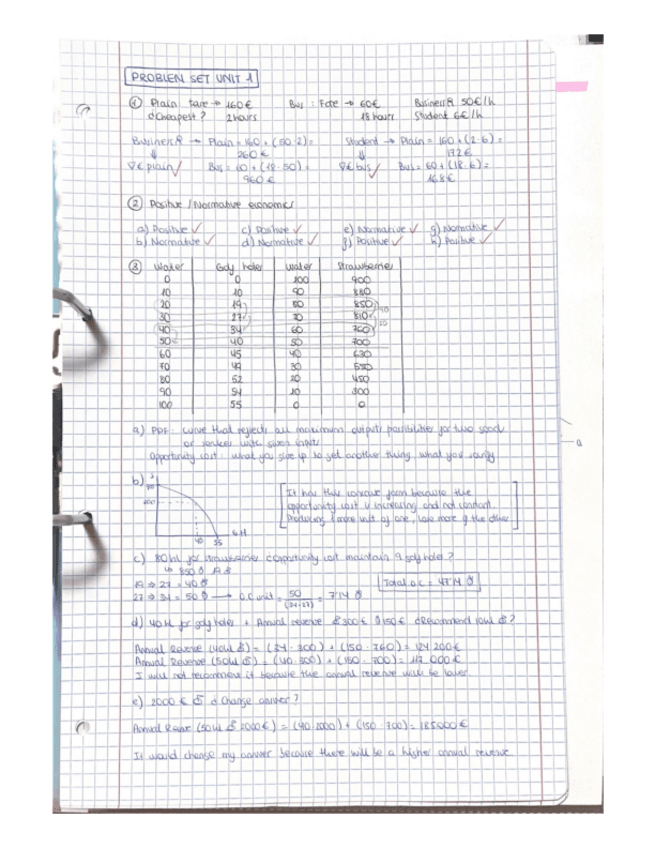 PROBLEM SET UNIT 1
① Plain fare → 160€ Bus : Fare → 60€ Business 50€/h
Cheapest? 2 hours 18 hours Student 6€/h
Business → Plain = 160 + (50·2) = Student → Plain = 160 + (2·6) =
260€ 172€
€ plain ✓ Bus = 60 + (18·50) = € bus ✓ Bus = 60 + (18·6) =
960€ 168€
② Positive / Normative economics
a) Positive ✓ c) Positive ✓ e) Normative ✓ g) Normative ✓
b) Normative ✓ d) Normative ✓ f) Positive ✓ h) Positive ✓
③ Water Golf holes water Strawberries
0 0 100 900
10 10 90 880
20 19 80 850
30 27 70 810
40 34 60 760
50 40 50 700
60 45 40 630
70 49 30 550
80 52 20 450
90 54 10 300
100 55 0 0
a) curve that reflects all maximum outputs possibilities for two good
or services with given input
Opportunity cost : what you give up to get another thing, what you
b)
[It has this concave form because the
opportunity cost is increasing and not constant.
Producing 1 more unit of one, lose more of the other]
c) 80 hL for strawberries opportunity cost maintain 9 golf holes?
850
19 → 27 = 40
27 → 34 = 50 → O.C unit = 50/(34-27) = 7'14 Total O.C = 47'14
d) 40 hL for golf holes + Annual revenue 300€ 150€ Recommend 10hL ?
Annual Revenue (40hL) = (34·300) + (150·760) = 124 200€
Annual Revenue (50hL) = (40·300) + (150·700) = 117 000€
I will not recommend it because the annual revenue will be lower
e) 2000€ Change answer?
Annual Reve (50hL 2000€) = (40·2000) + (150·700) = 185000€
It would change my answer because there will be a higher annual revenue